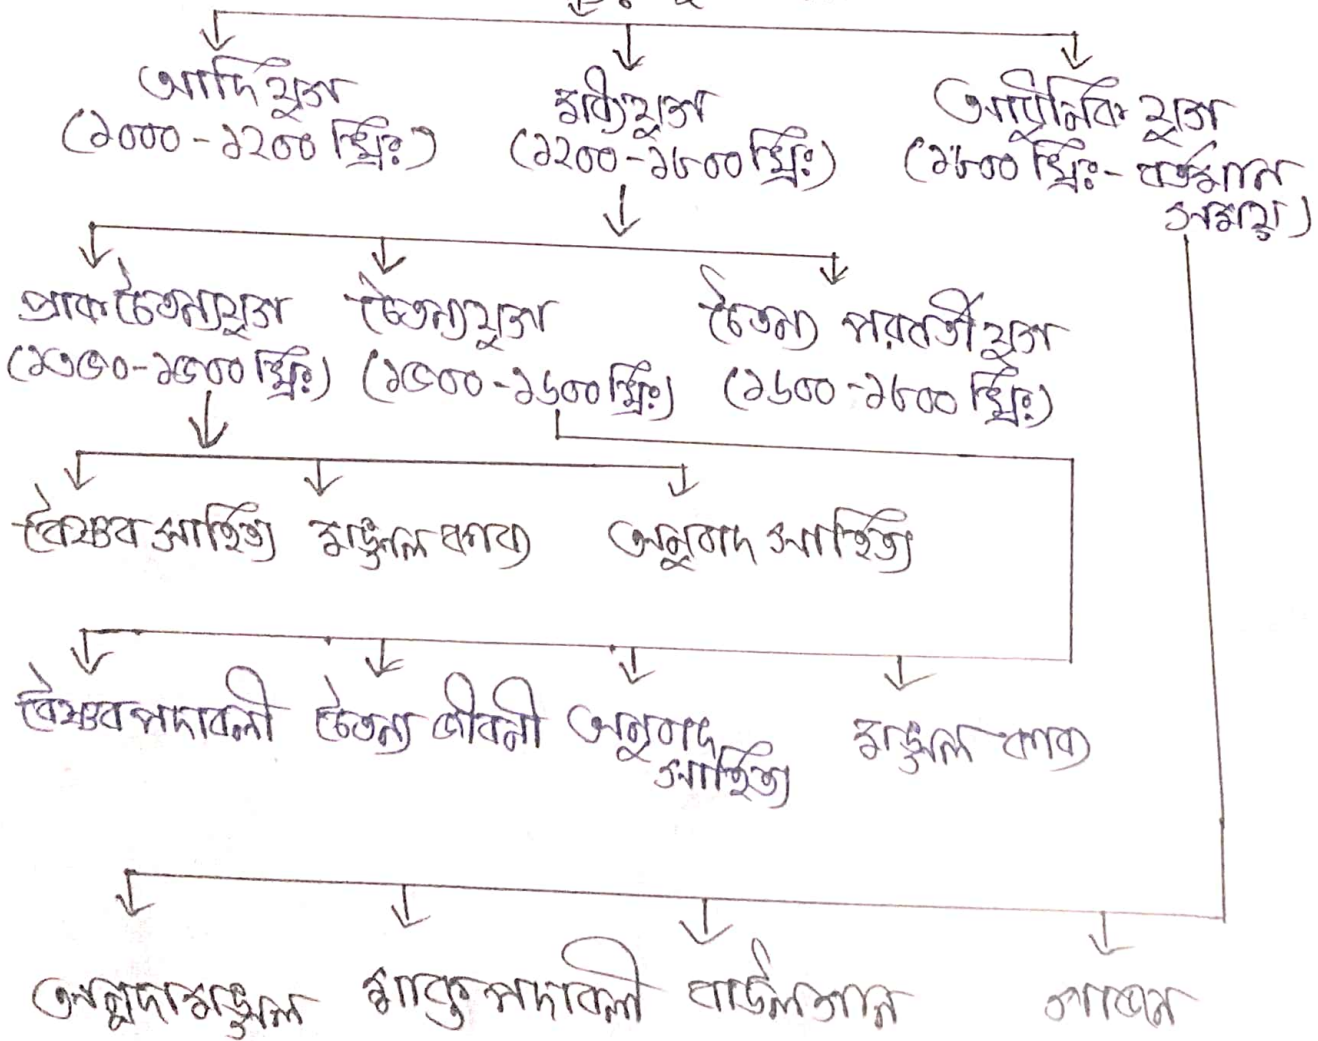 আদি যুগ
(১০০০-১২০০ খ্রিঃ)
মধ্যযুগ
(১২০০-১৮০০ খ্রিঃ)
আধুনিক যুগ
(১৮০০ খ্রিঃ- বর্তমান
সময়)
প্রাকচৈতন্যযুগ
(১৩৫০-১৫০০ খ্রিঃ)
চৈতন্যযুগ
(১৫০০-১৬০০ খ্রিঃ)
চৈতন্য পরবর্তী যুগ
(১৬০০-১৮০০ খ্রিঃ)
বৈষ্ণব সাহিত্য
মঙ্গল কাব্য
অনুবাদ সাহিত্য
বৈষ্ণব পদাবলী
চৈতন্য জীবনী
অনুবাদ
সাহিত্য
মঙ্গল কাব্য
অন্নদামঙ্গল
শাক্ত পদাবলী
বাউলগান